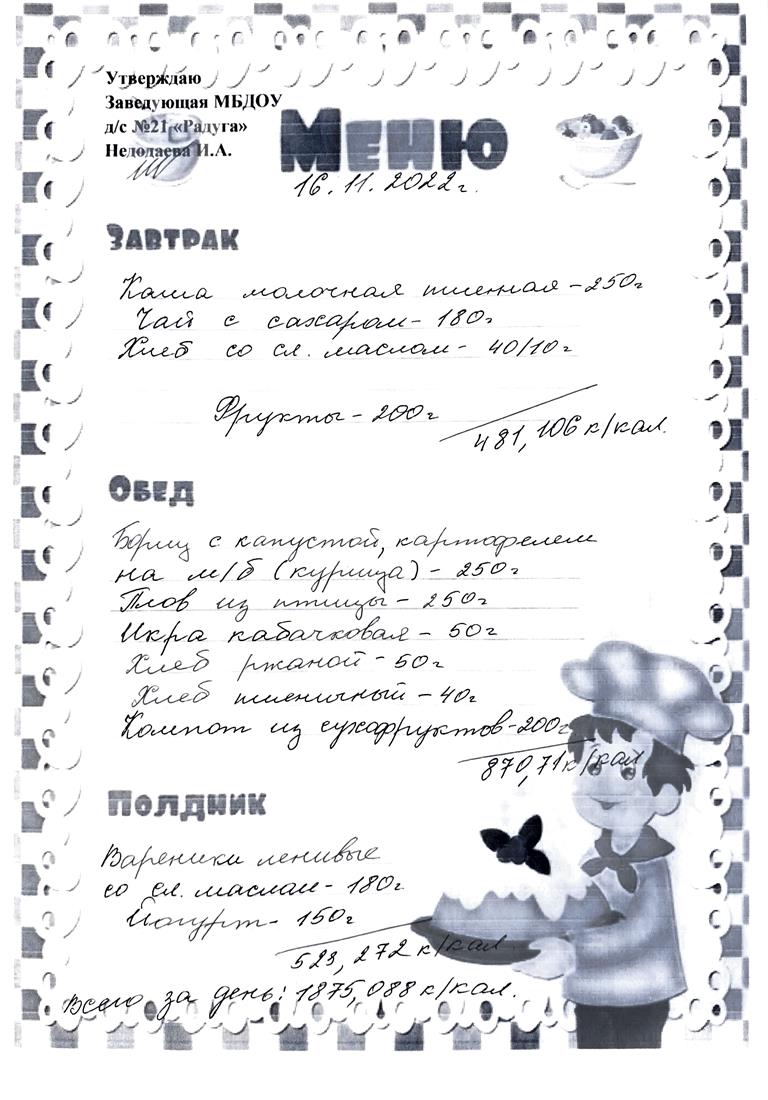 Утверждаю
Заведующая МБДОУ
д/с №21 «Радуга»
Недодаева И.А.
Меню
16.11.2022г.
Завтрак
Каша молочная пшенная - 250г
Чай с сахаром - 180г
Хлеб со сл. маслом - 40/10г
Фрукты - 200г
481,106 к/кал.
Обед
Борщ с капустой, картофелем
на м/б (курица) - 250г
Плов из птицы - 250г
Икра кабачковая - 50г
Хлеб ржаной - 50г
Хлеб пшеничный - 40г
Компот из сухофруктов - 200г
870,71 к/кал
Полдник
Вареники ленивые
со сл. маслом - 180г
Йогурт - 150г
523,272 к/кал
Всего за день: 1875,088 к/кал.